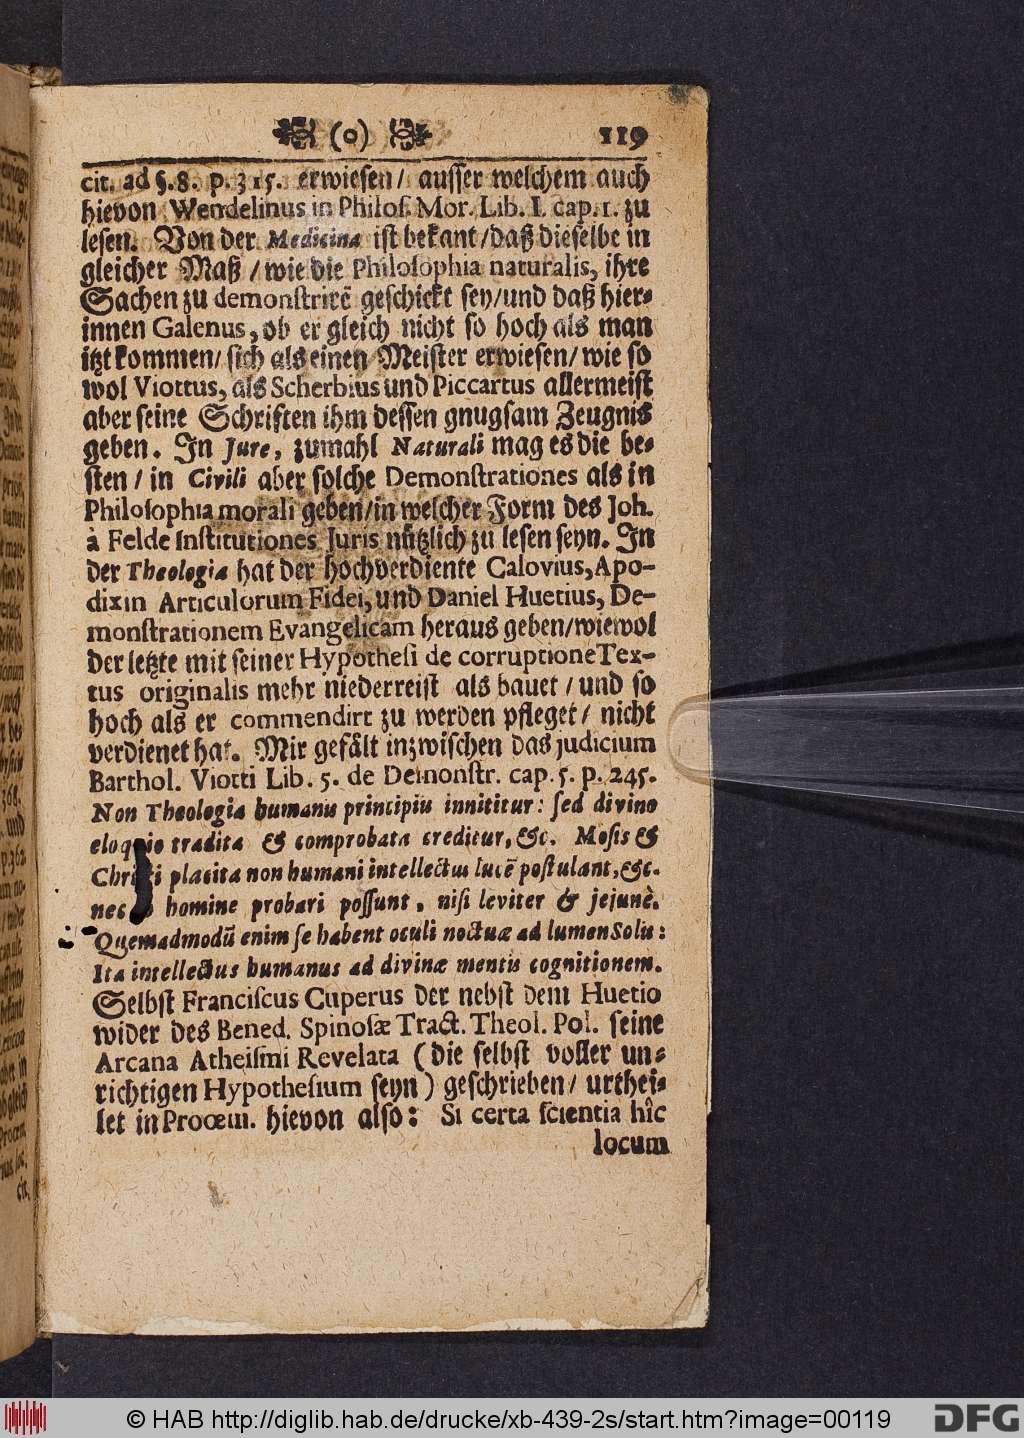 (o) 119
cit. ad §. 8. p. 315. erwiesen / ausser welchem auch
hievon Wendelinus in Philos. Mor. Lib. I. cap. 1. zu
lesen. Von der Medicina ist bekant / daß dieselbe in
gleicher Maß / wie die Philosophia naturalis, ihre
Sachen zu demonstrirẽ geschickt sey / und daß hier-
innen Galenus, ob er gleich nicht so hoch als man
itzt kommen / sich als einen Meister erwiesen / wie so
wol Viottus, als Scherbius und Piccartus allermeist
aber seine Schriften ihm dessen gnugsam Zeugnis
geben. In Jure, zumahl Naturali mag es die be-
sten / in Civili aber solche Demonstrationes als in
Philosophia morali geben / in welcher Form des Joh.
à Felde Institutiones Juris nützlich zu lesen seyn. In
der Theologia hat der hochverdiente Calovius, Apo-
dixin Articulorum Fidei, und Daniel Huetius, De-
monstrationem Evangelicam heraus geben / wiewol
der letzte mit seiner Hypothesi de corruptione Tex-
tus originalis mehr niederreist als bauet / und so
hoch als er commendirt zu werden pfleget / nicht
verdienet hat. Mir gefält inzwischen das judicium
Barthol. Viotti Lib. 5. de Demonstr. cap. 5. p. 245.
Non Theologia humanis principiis innititur: sed divino
eloquio tradita & comprobata creditur, &c. Mosis &
Christi placita non humani intellectus lucẽ postulant, &c.
nec homine probari possunt, nisi leviter & jejunè.
Quemadmodũ enim se habent oculi noctuæ ad lumen Solis:
Ita intellectus humanus ad divinæ mentis cognitionem.
Selbst Franciscus Cuperus der nebst dem Huetio
wider des Bened. Spinosæ Tract. Theol. Pol. seine
Arcana Atheismi Revelata (die selbst voller un-
richtigen Hypothesium seyn) geschrieben / urthei-
let in Prooem. hievon also: Si certa scientia hîc
locum
© HAB http://diglib.hab.de/drucke/xb-439-2s/start.htm?image=00119
DFG